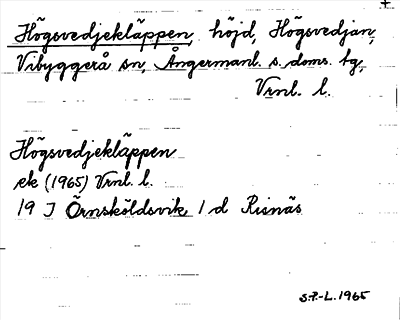 Högsvedjekläppen, höjd, Högsvedjan,
Vibyggerå sn, Ångermanl. s. doms. tg,
Vrnl. l.
Högsvedjekläppen
ek (1965) Vrnl. l.
19 J Örnsköldsvik 1 d Risnäs
S.P.-L. 1965